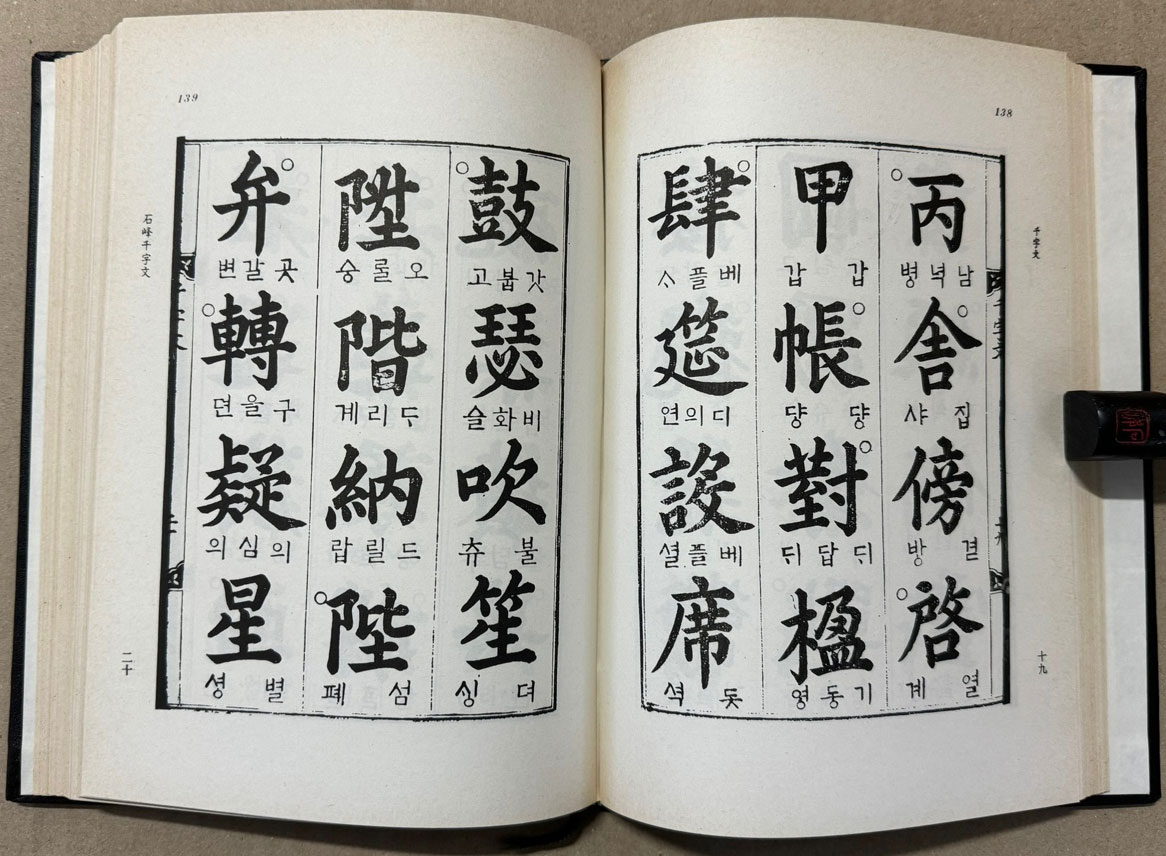 138
千字文
丙
남녁병
舍
집샤
傍
겯방
啓
열계
甲
갑갑
帳
댱댱
對
ᄃᆡ답ᄃᆡ
楹
기동영
肆
베플ᄉᆞ
筵
디의연
設
베플셜
席
돗셕
十九
139
鼓
갓붑고
瑟
비화슬
吹
불츄
笙
뎌싱
陞
오롤승
階
ᄃᆞ리계
納
드릴랍
陛
섬폐
弁
곳갈변
轉
구을뎐
疑
의심의
星
별셩
石峰千字文
二十